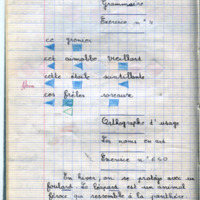 Grammaire
Exercice n°
ce grenier
cet aimable vieillard
cette étoile scintillante
ces frêles roseaux
Orthographe d'usage
Les noms en
Exercice n° 640
En hiver, on se protège avec un
foulard. Le léopard est un animal
féroce qui ressemble à la panthère.